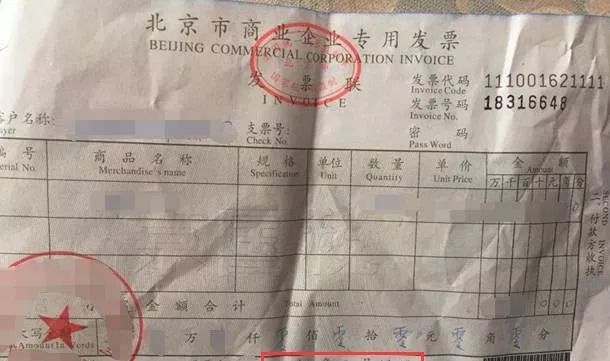 北京市商业企业专用发票
BEIJING COMMERCIAL CORPORATION INVOICE
发票联
INVOICE
发票代码 111001621111
Invoice Code
发票号码 18316648
Invoice No.
客户名称: 支票号: 密码
ayer Check No. Pass Word
编号 商品名称 规格 单位 数量 单价 金额
erial No. Merchandise's name Specification Unit Quantity Unit Price Amount
万千百十元角分
二、付款方收执
SECOND INVOICE
金额合计 Total Amount 000
大写金额 万 仟 零佰 零拾 零元 零角 零分
Amount In Words